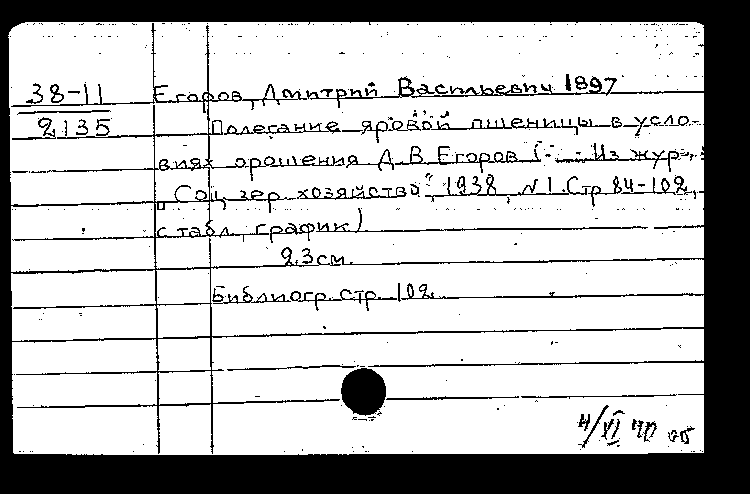 38-11 Егоров, Дмитрий Васильевич 1897
2135 Полегание яровой пшеницы в усло-
виях орошения Д. В. Егоров (- Из жур.:
"Соц. зер. хозяйство", 1938, N 1. Стр 84-102,
с табл., график)
23 см.
Библиогр. стр. 102.
4/XI 40